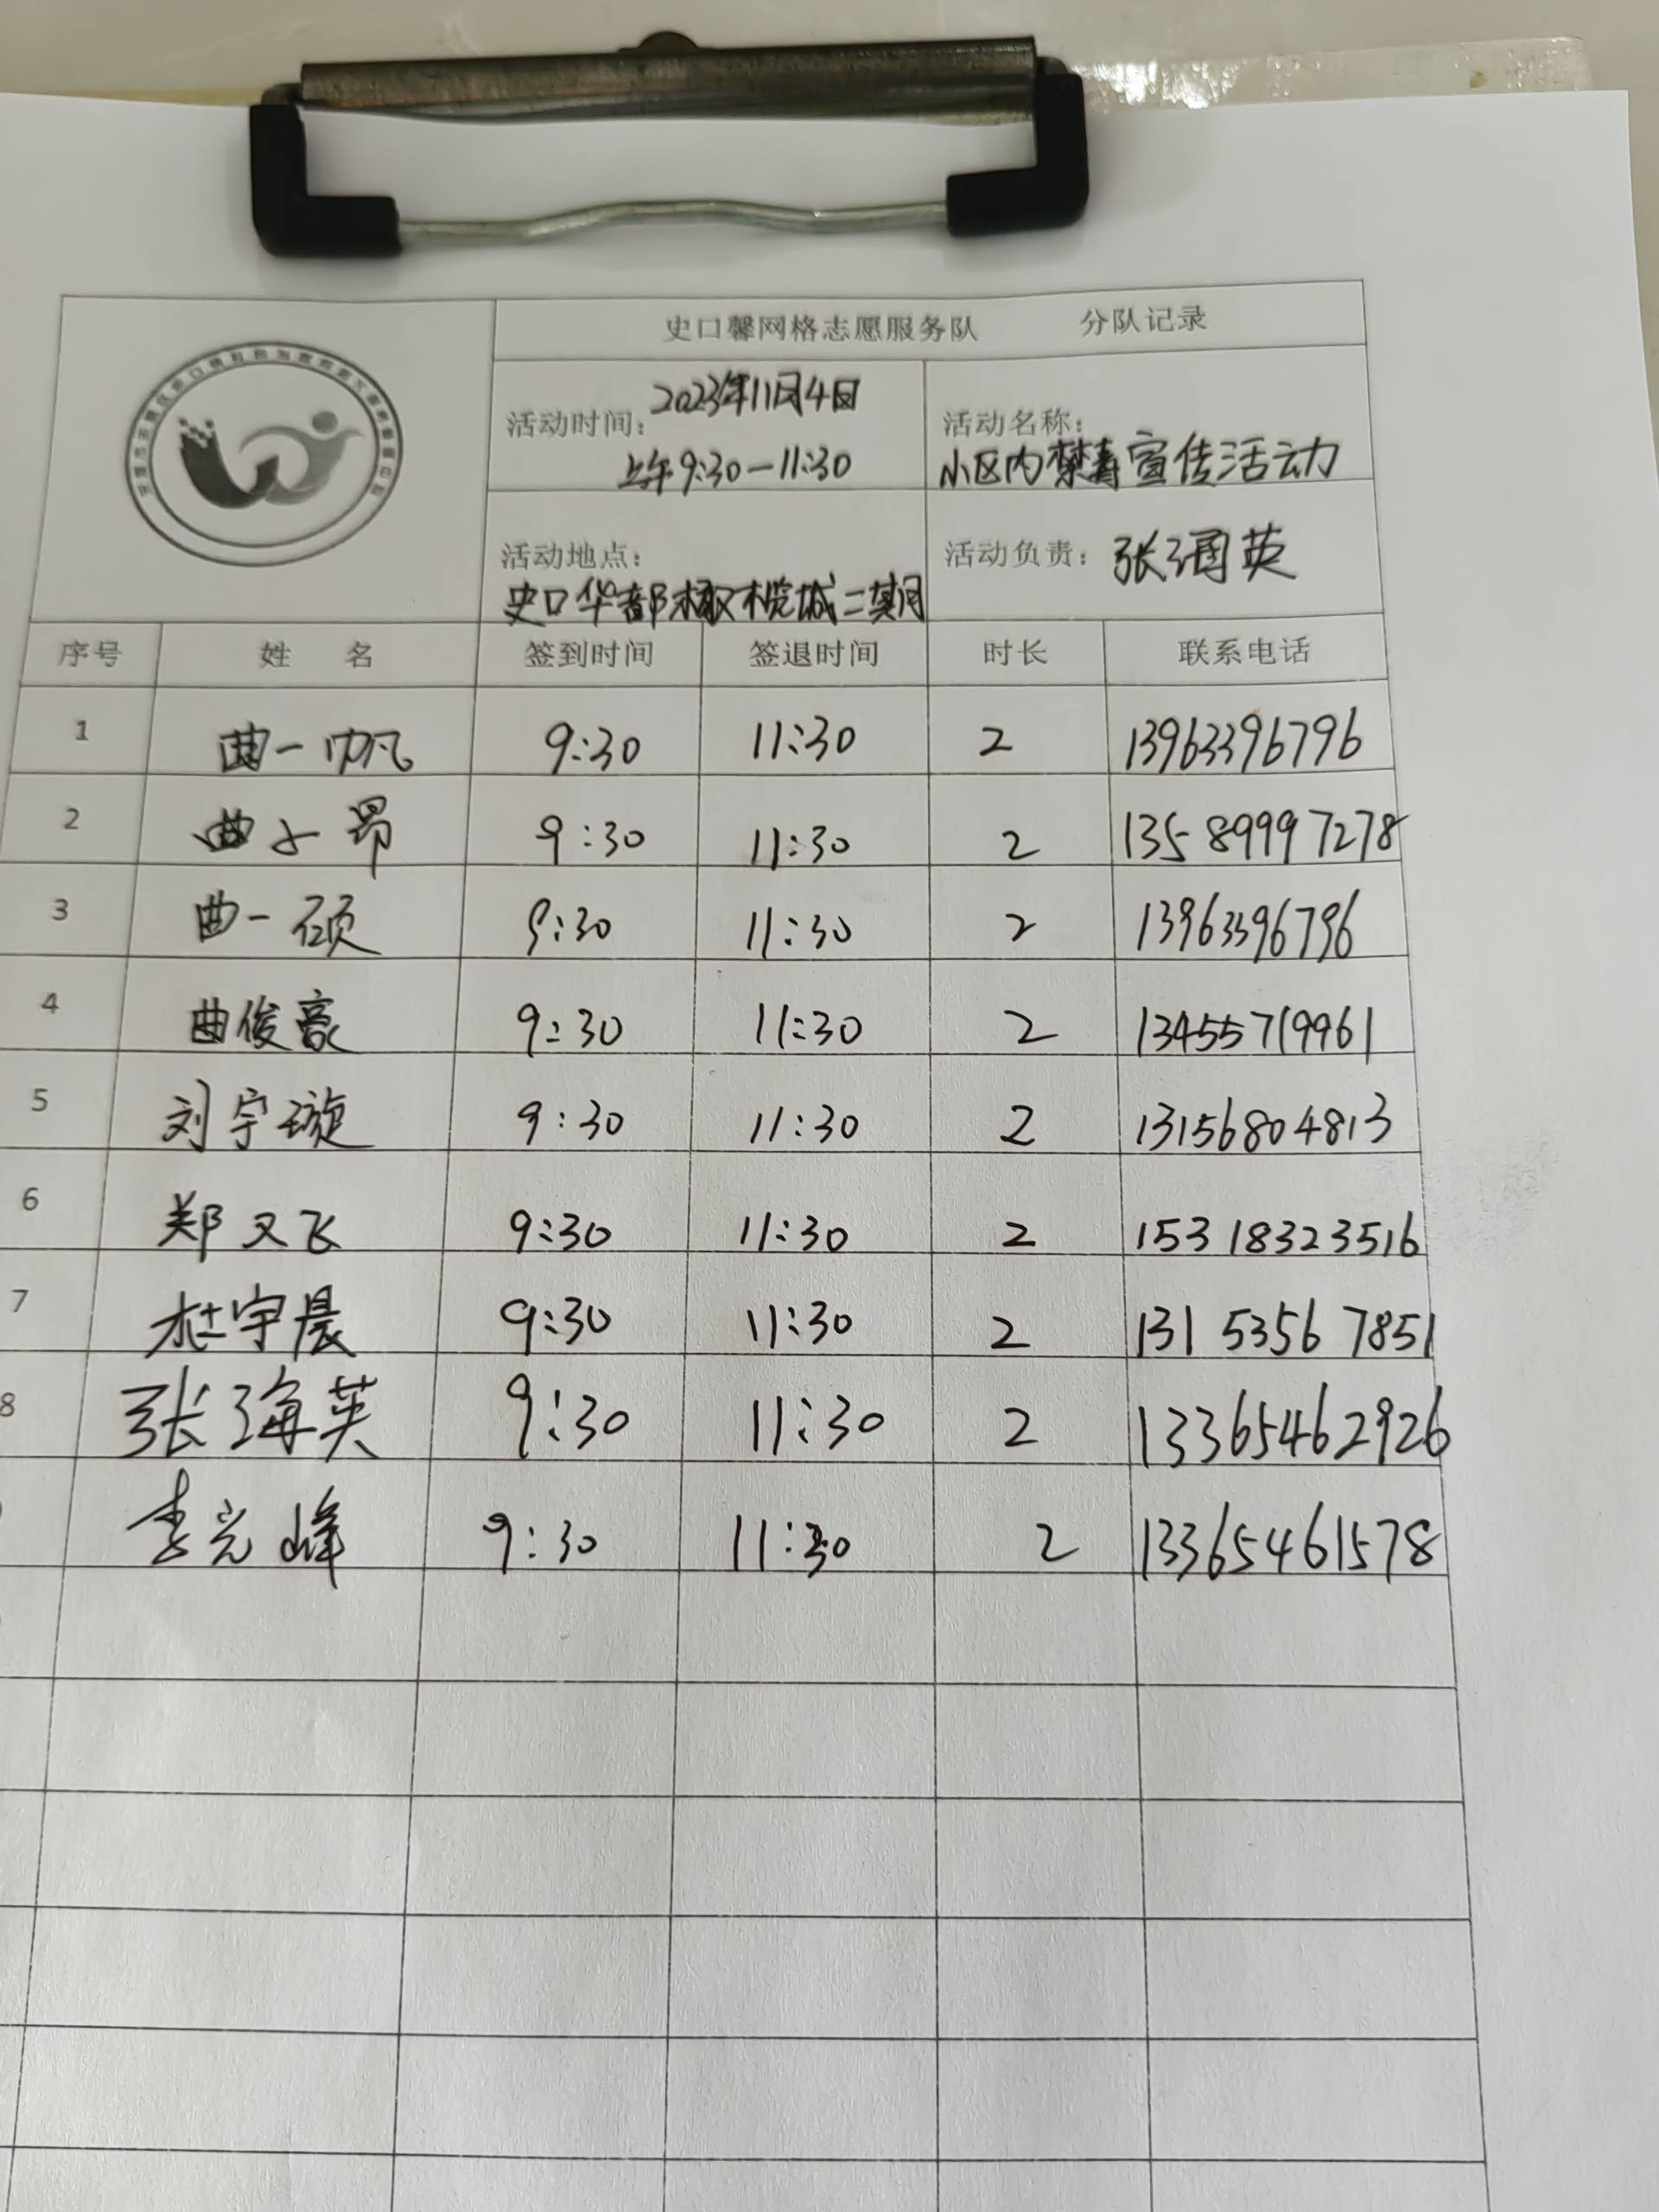 史口馨网格志愿服务队 分队记录
活动时间: 2023年11月4日
上午9:30—11:30
活动名称:
小区内禁毒宣传活动
活动地点:
史口华都橄榄城二期
活动负责: 张海英
序号 姓 名 签到时间 签退时间 时长 联系电话
1 曲一帆 9:30 11:30 2 13963396796
2 曲 昂 9:30 11:30 2 13589997278
3 曲一硕 9:30 11:30 2 13963396796
4 曲俊豪 9:30 11:30 2 13455719961
5 刘宇璇 9:30 11:30 2 13156804813
6 郑又飞 9:30 11:30 2 15318323516
7 杜宇晨 9:30 11:30 2 13153567851
8 张海英 9:30 11:30 2 13365462926
李光峰 9:30 11:30 2 13365461578